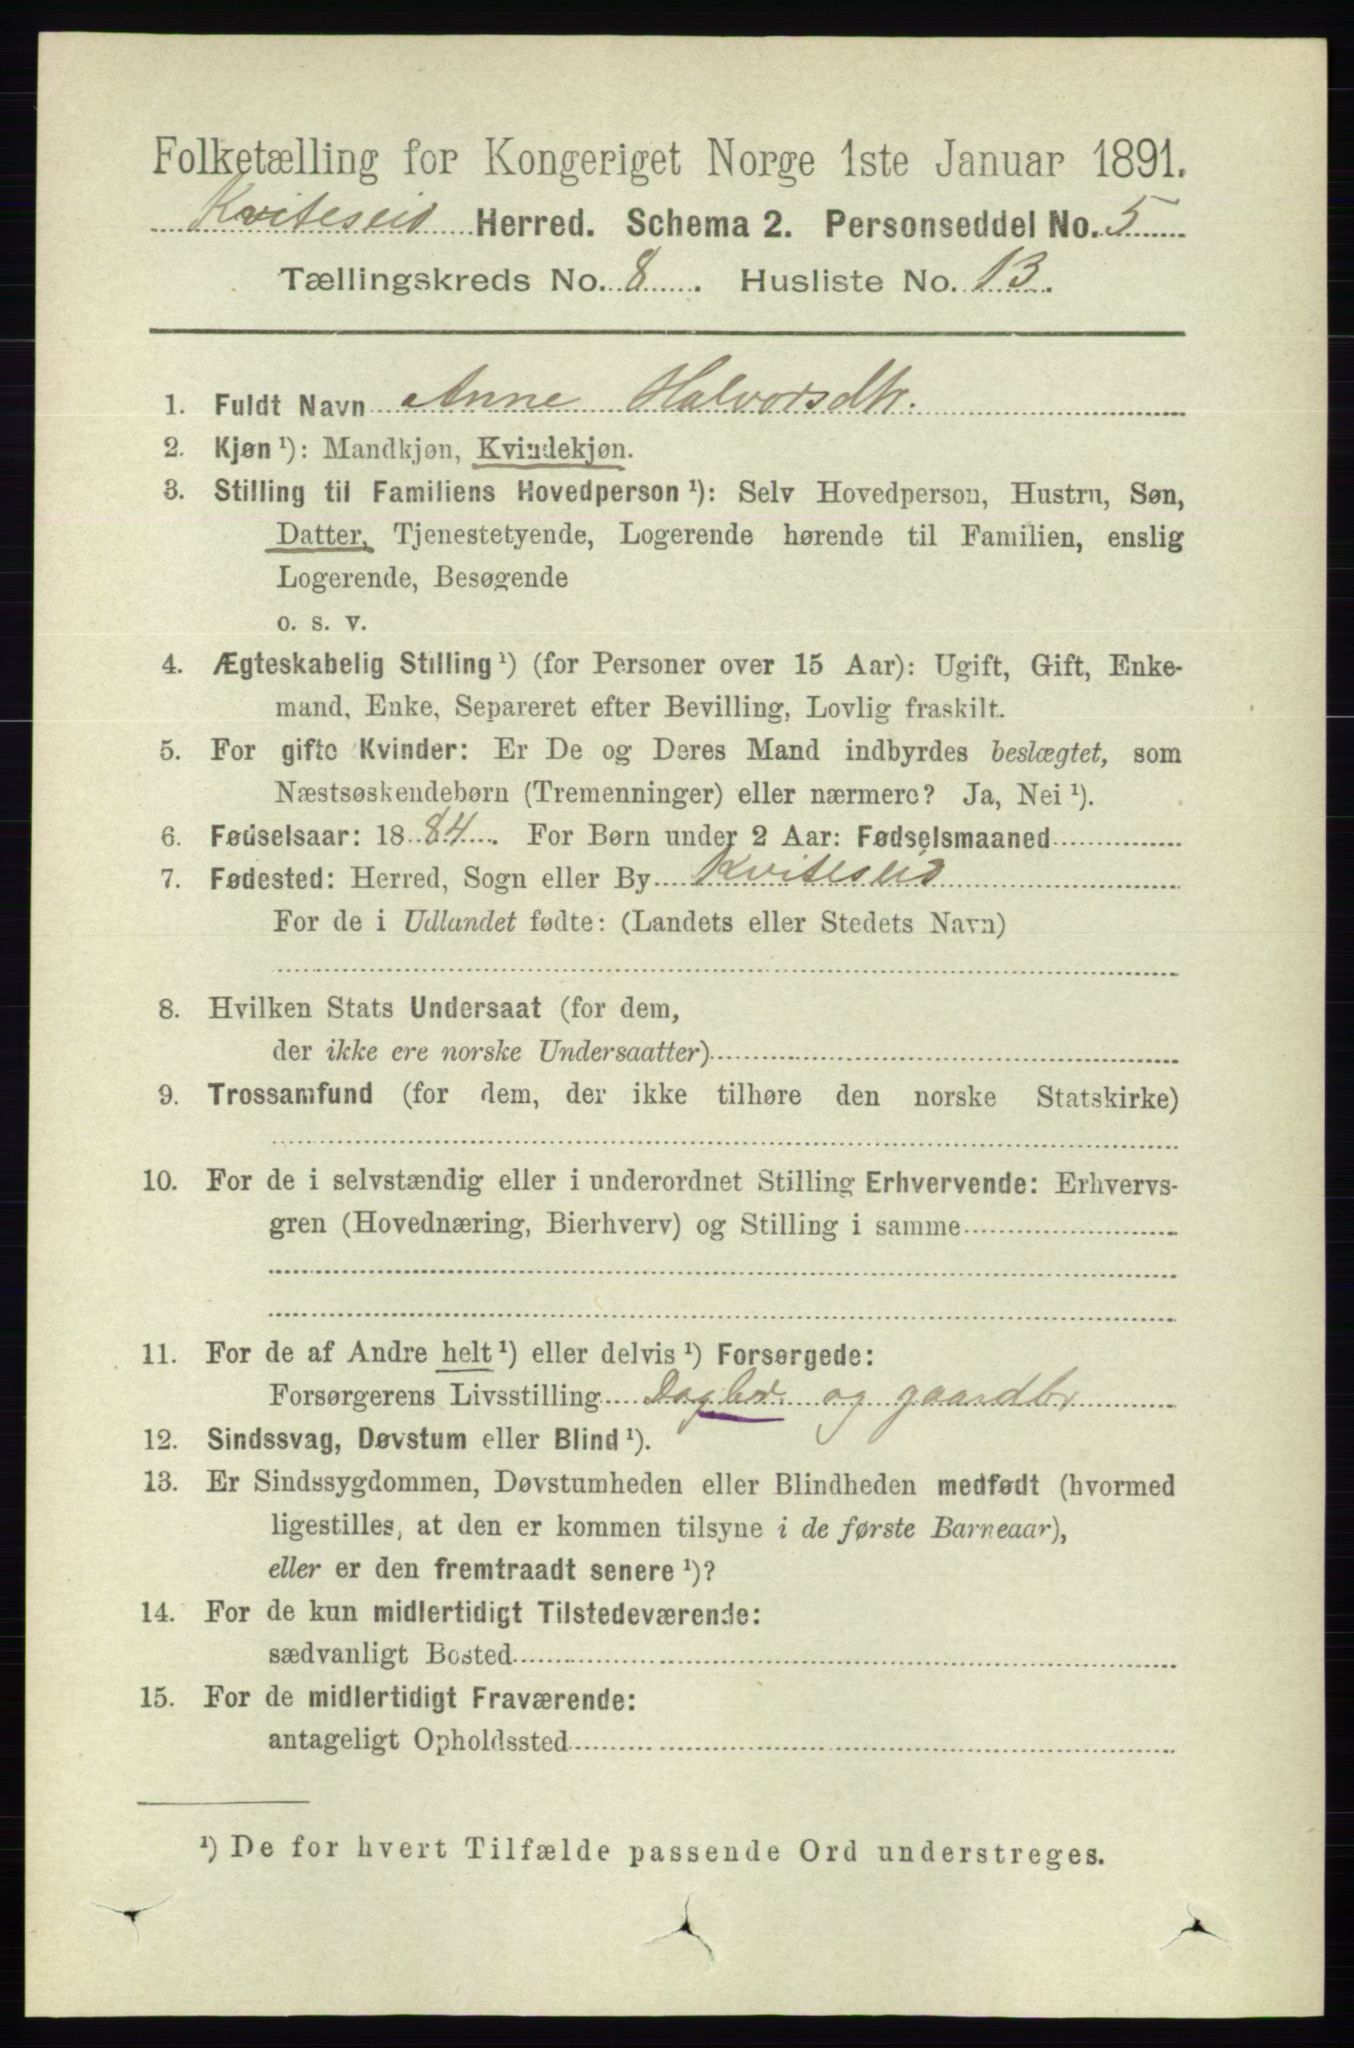 Folketælling for Kongeriget Norge 1ste Januar 1891.
Kviteseid Herred. Schema 2. Personseddel No. 5
Tællingskreds No. 8. Husliste No. 13.
1. Fuldt Navn Anne Halvorsdtr.
2. Kjøn ¹): Mandkjøn, Kvindekjøn.
3. Stilling til Familiens Hovedperson ¹): Selv Hovedperson, Hustru, Søn,
Datter, Tjenestetyende, Logerende hørende til Familien, enslig
Logerende, Besøgende
o. s. v.
4. Ægteskabelig Stilling ¹) (for Personer over 15 Aar): Ugift, Gift, Enke-
mand, Enke, Separeret efter Bevilling, Lovlig fraskilt.
5. For gifte Kvinder: Er De og Deres Mand indbyrdes beslægtet, som
Næstsøskendebørn (Tremenninger) eller nærmere? Ja, Nei ¹).
6. Fødselsaar: 1884. For Børn under 2 Aar: Fødselsmaaned
7. Fødested: Herred, Sogn eller By Kviteseid
For de i Udlandet fødte: (Landets eller Stedets Navn)
8. Hvilken Stats Undersaat (for dem,
der ikke ere norske Undersaatter)
9. Trossamfund (for dem, der ikke tilhøre den norske Statskirke)
10. For de i selvstændig eller i underordnet Stilling Erhvervende: Erhvervs-
gren (Hovednæring, Bierhverv) og Stilling i samme
11. For de af Andre helt ¹) eller delvis ¹) Forsørgede:
Forsørgerens Livsstilling Dagbr. og gaardbr
12. Sindssvag, Døvstum eller Blind ¹).
13. Er Sindssygdommen, Døvstumheden eller Blindheden medfødt (hvormed
ligestilles, at den er kommen tilsyne i de første Barneaar),
eller er den fremtraadt senere ¹)?
14. For de kun midlertidigt Tilstedeværende:
sædvanligt Bosted
15. For de midlertidigt Fraværende:
antageligt Opholdssted
¹) De for hvert Tilfælde passende Ord understreges.